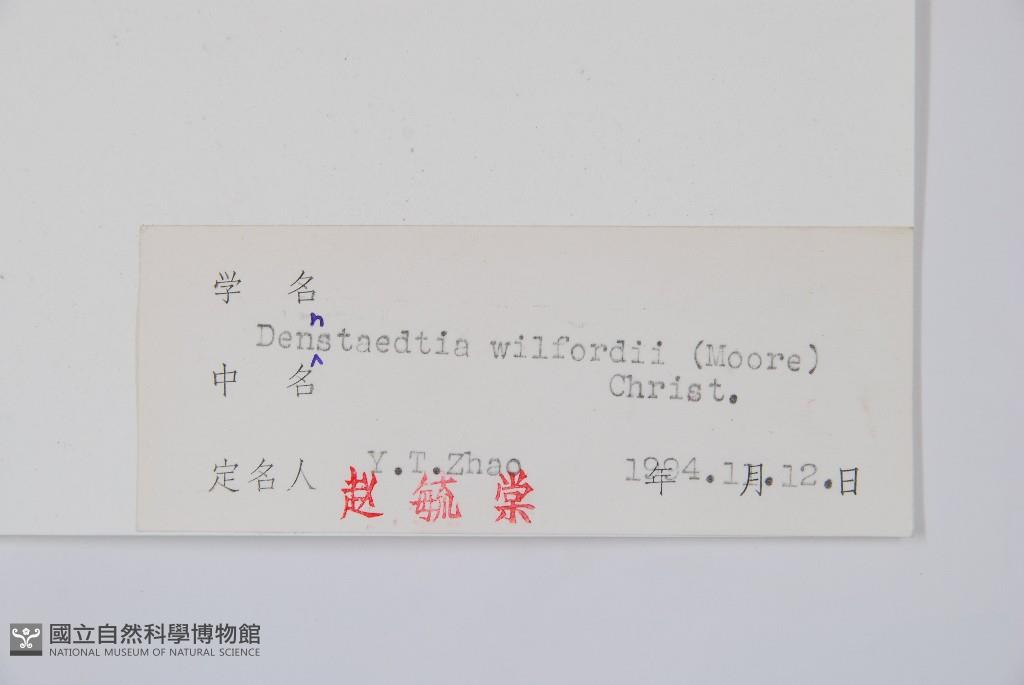 学 名
n
Denstaedtia wilfordii (Moore)
Christ.
中 名
定名人 Y.T.Zhao 1994年.11月.12.日
赵 毓 棠
國立自然科學博物館
NATIONAL MUSEUM OF NATURAL SCIENCE